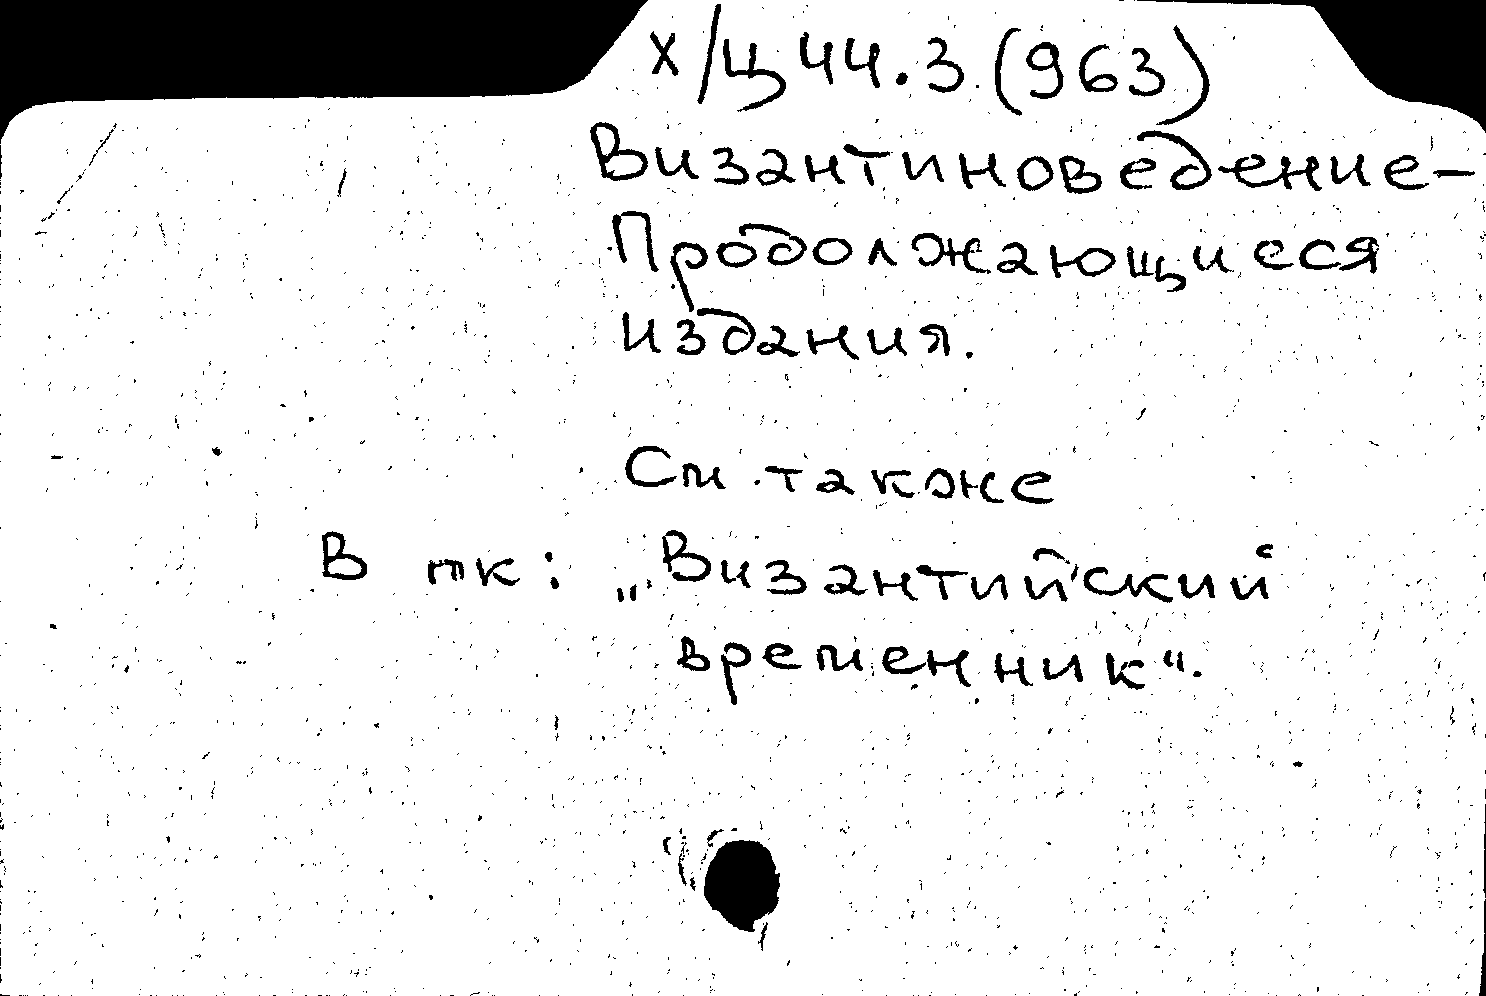 х/Ц44.3(963)
Византиноведение-
Продолжающиеся
издания.
См. также
В тк: „Византийский
временник“.